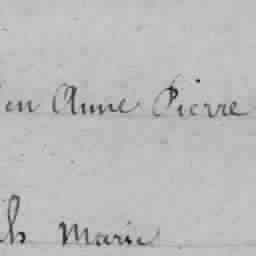 en Anne Pierre
Marie